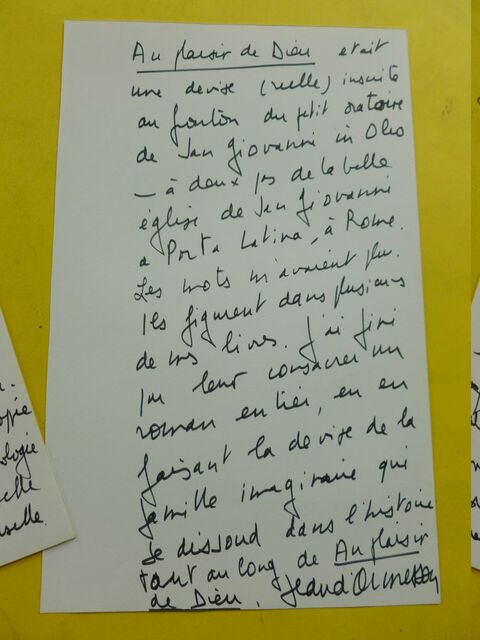 Au plaisir de Dieu était
une devise (réelle) inscrite
au fronton du petit oratoire
de San Giovanni in Oleo
– à deux pas de la belle
église de San Giovanni
a Porta Latina, à Rome.
Les mots m'avaient plu.
Ils figurent dans plusieurs
de mes livres. J'ai fini
par leur consacrer un
roman entier, en en
faisant la devise de la
famille imaginaire qui
se dissout dans l'histoire
tout au long de Au plaisir
de Dieu. Jean d'Ormesson
opie
ologie
elle